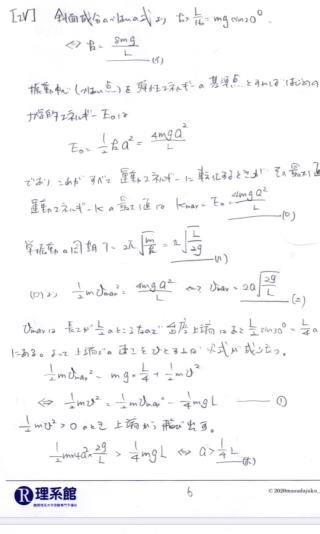 [IV] 斜面成分のつりあい式より k×L/16=mg sin30°
⇔ k=8mg/L (イ)
振動中心(つりあい点)を弾性エネルギーの基準点とすれば はじめの
エネルギーE₀は
E₀=1/2ka²=4mga²/L
であり これがすべて運動エネルギーに転化するときが その最大値
運動エネルギーKの最大値は Kmax=E₀=4mga²/L (ロ)
単振動の周期T=2π√(m/k)=π√(L/2g) (ハ)
(ロ)より 1/2mvmax²=4mga²/L ⇔ vmax=2a√(2g/L) (ニ)
vmaxは 長さが L/2のところなので 上端は L/2 sin30°=L/4の
にある。よって上端の速さをvとすれば 次式が成り立つ。
1/2mvmax²=mg×L/4+1/2mv²
⇔ 1/2mv²=1/2mvmax²-1/4mgL ①
1/2mv²>0のとき 上端から飛び出す。
1/2m×4a²×2g/L>1/4mgL ⇔ a>1/4L (ホ)
R 理系館
6